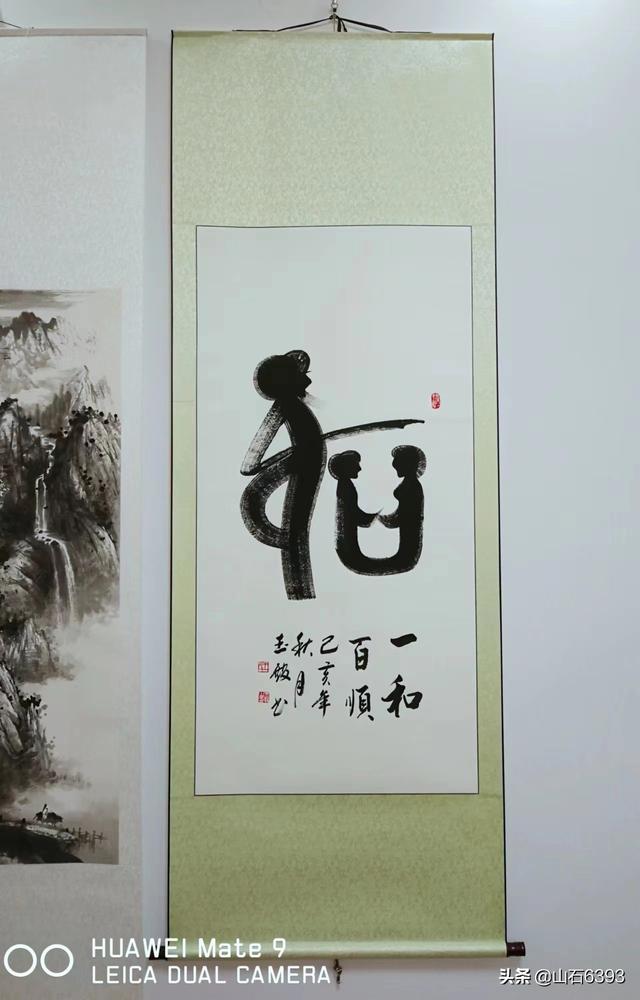 和
一和
百順
己亥年
秋月
HUAWEI Mate 9
LEICA DUAL CAMERA
头条 @山石6393